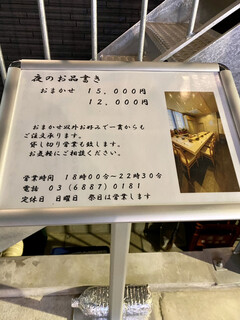 夜のお品書き
おまかせ 15,000円
12,000円
おまかせ以外お好みで一貫からも
ご注文承ります。
貸し切り営業も致します。
お気軽にご相談ください。
営業時間 18時00分～22時30分
電話 03(6887)0181
定休日 日曜日 祭日は営業します